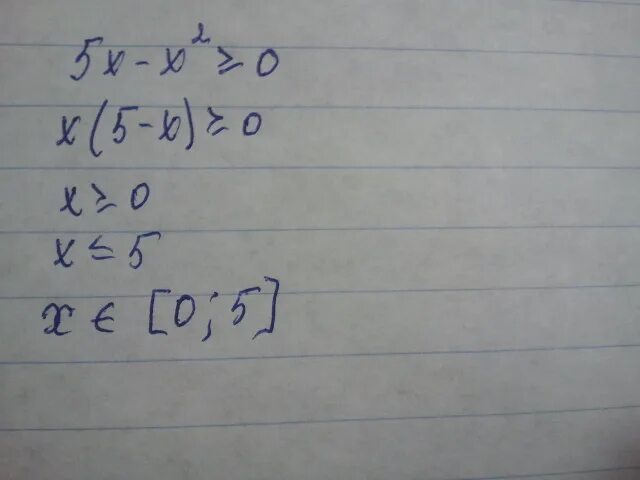 5x - x² ≥ 0
x(5 - x) ≥ 0
x ≥ 0
x ≤ 5
x ∈ [0; 5]